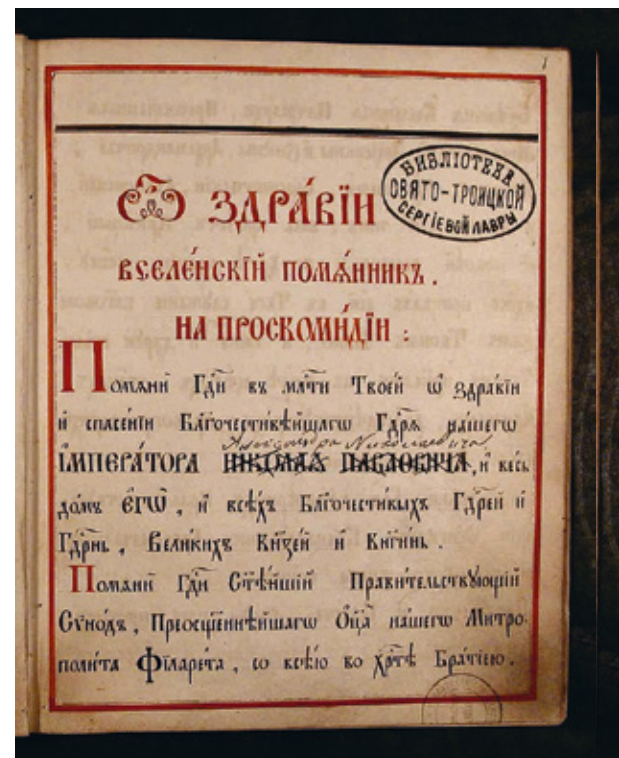 1
БИБЛІОТЕКА
СВЯТО-ТРОИЦКОЙ
СЕРГІЕВОЙ ЛАВРЫ
Ѽ ЗДРА́ВЇИ
ВСЕЛЕ́НСКЇЙ ПОМѦ́ННИКЪ.
НА ПРОСКОМИ́ДЇИ:
Помѧни Гд҇и въ мл҇ти Твоей ѡ҆ здравїи
и҆ спасенїи Бл҃гочестивѣйшагѡ Гдрѧ нашегѡ
Александра Николаевича
ІМПЕРА́ТОРА НИКОЛАѦ ПАВЛОВИЧА, и҆ весь
домъ ЕГѠ̀, и҆ всѣхъ Бл҃гочестивыхъ Гдрей и҆
Гдрнь, Великихъ Кнѕей и҆ Кнгинь.
Помѧни Гд҇и Ст҃ѣйшїй Правительствꙋющїй
Сѵнодъ, Преосщ҃еннѣйшагѡ Оц҃а нашегѡ Митро-
полита Фїларета, со всею во хр҇тѣ Братїею.